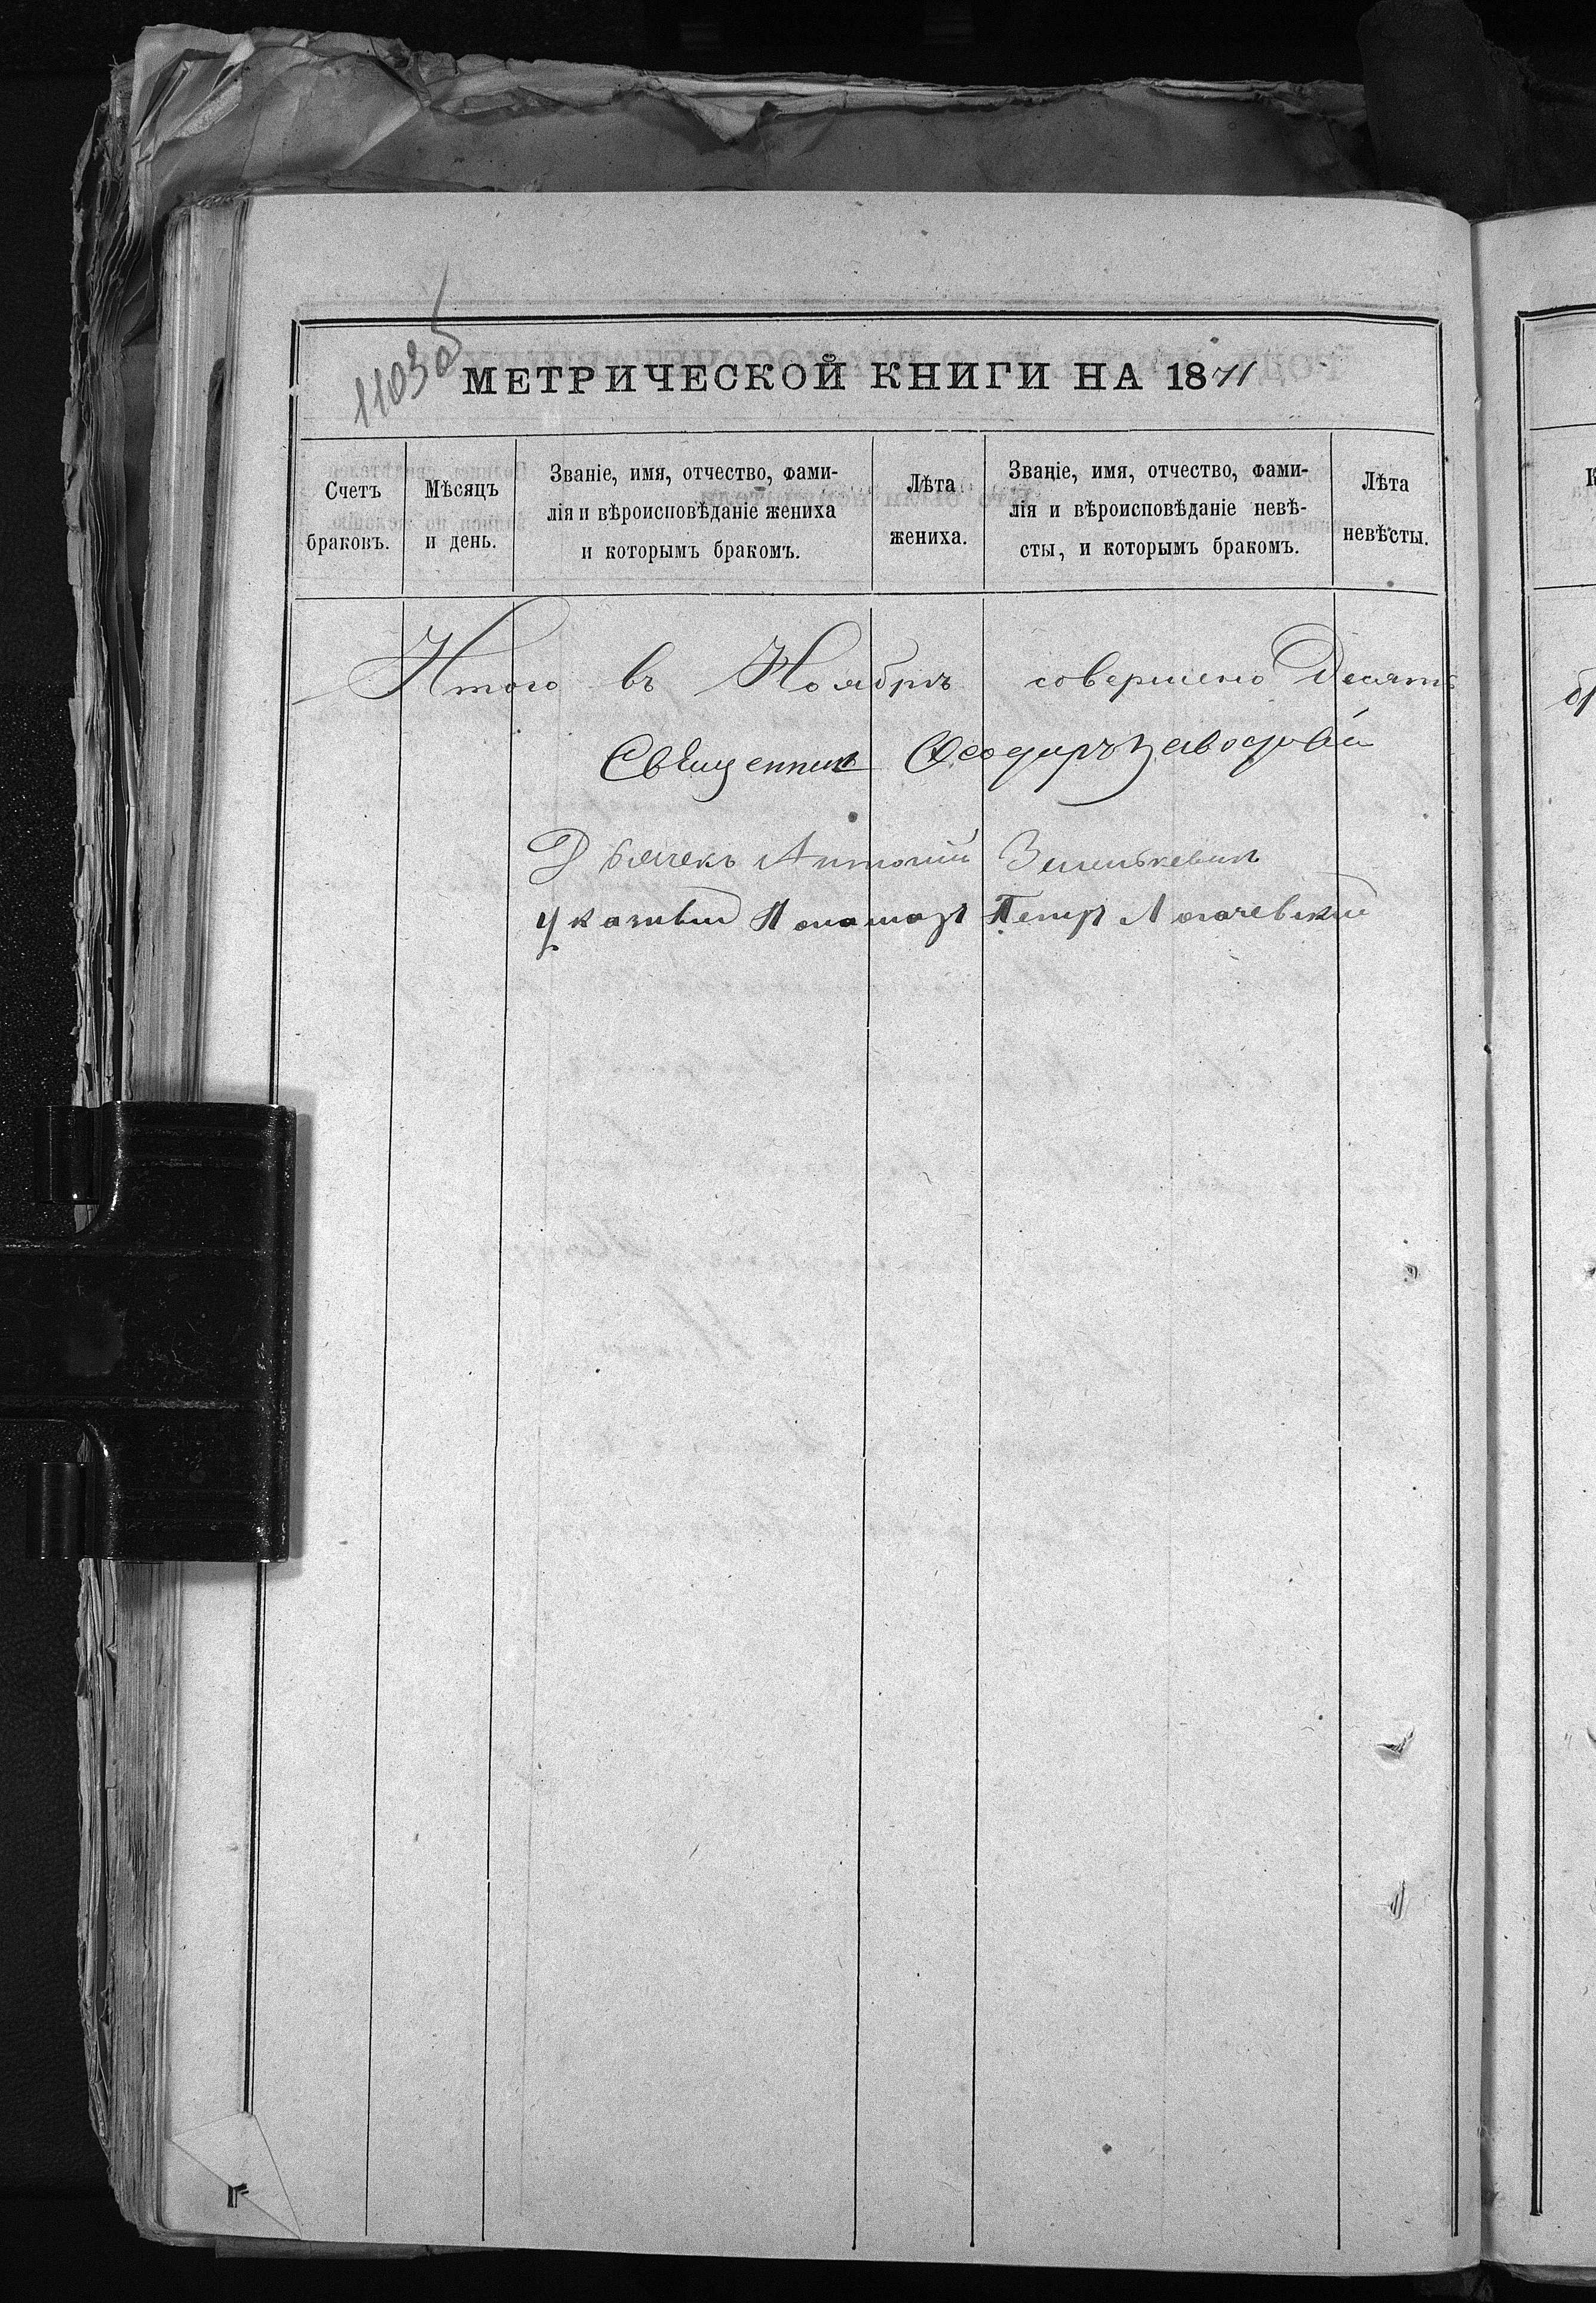 11030
МЕТРИЧЕСКОЙ КНИГИ НА 1871
Счетъ браковъ.
Мѣсяцъ и день.
Званіе, имя, отчество, фами-
лія и вѣроисповѣданіе жениха
и которымъ бракомъ.
Лѣта
жениха.
Званіе, имя, отчество, фами-
лія и вѣроисповѣданіе невѣ-
сты, и которымъ бракомъ.
Лѣта
невѣсты.
Итого въ Ноябрѣ совершено Десять
Священник Ѳеодоръ
Дьячекъ Антоній Зенькевич
Указный Пономарь Петръ Логачевский